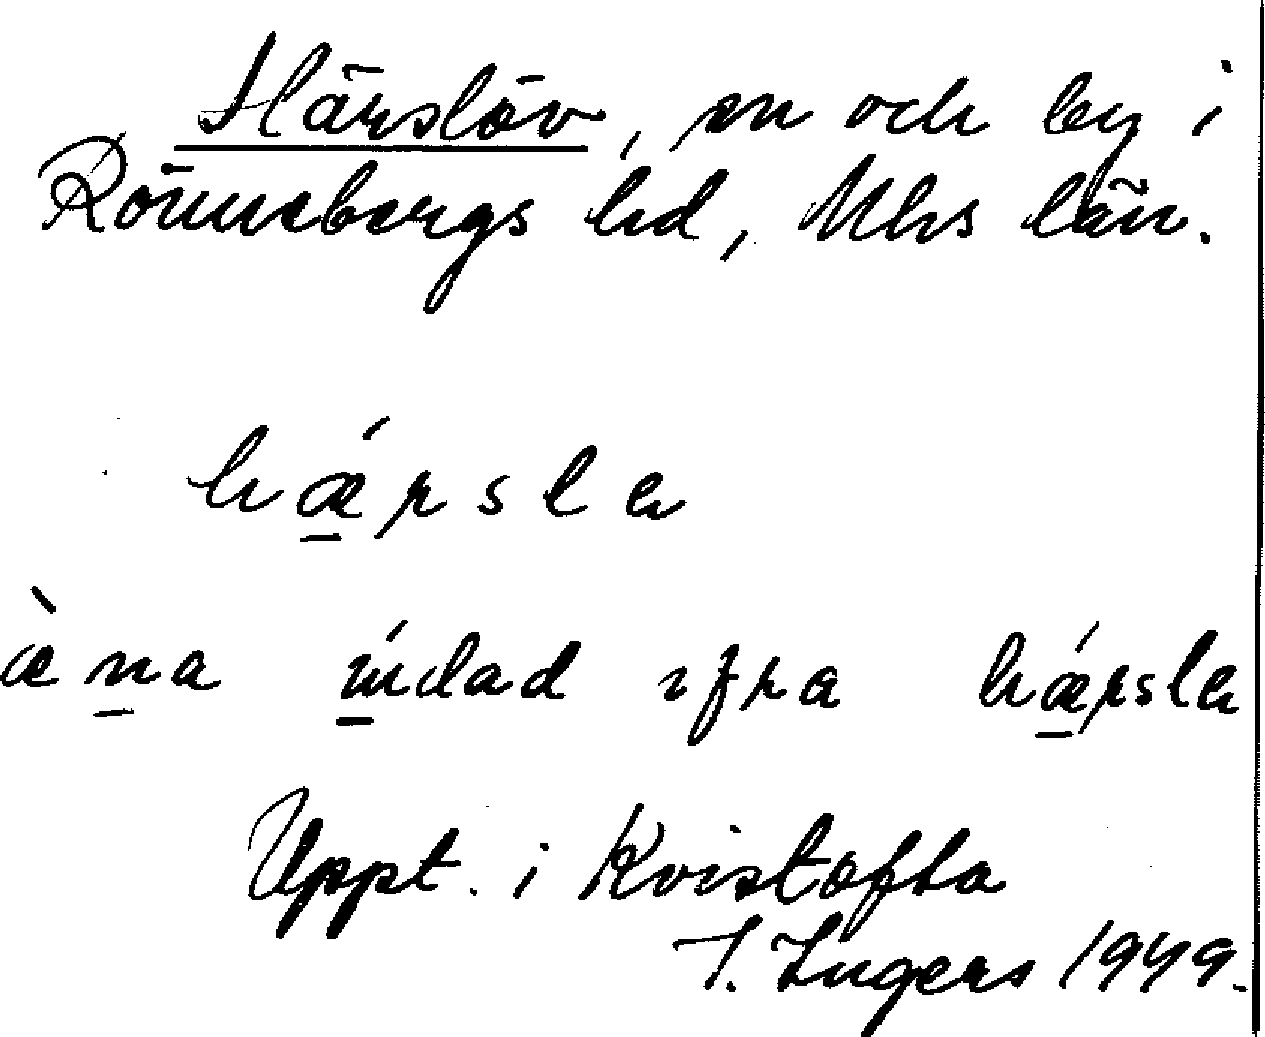 Härslöv, sn och by i
Rönnebergs hd, Mhs län.
hǽrsla
æ̀na ı́ńdad ifra hǽrsla
Uppt. i Kvistofta
I. Ingers 1949.